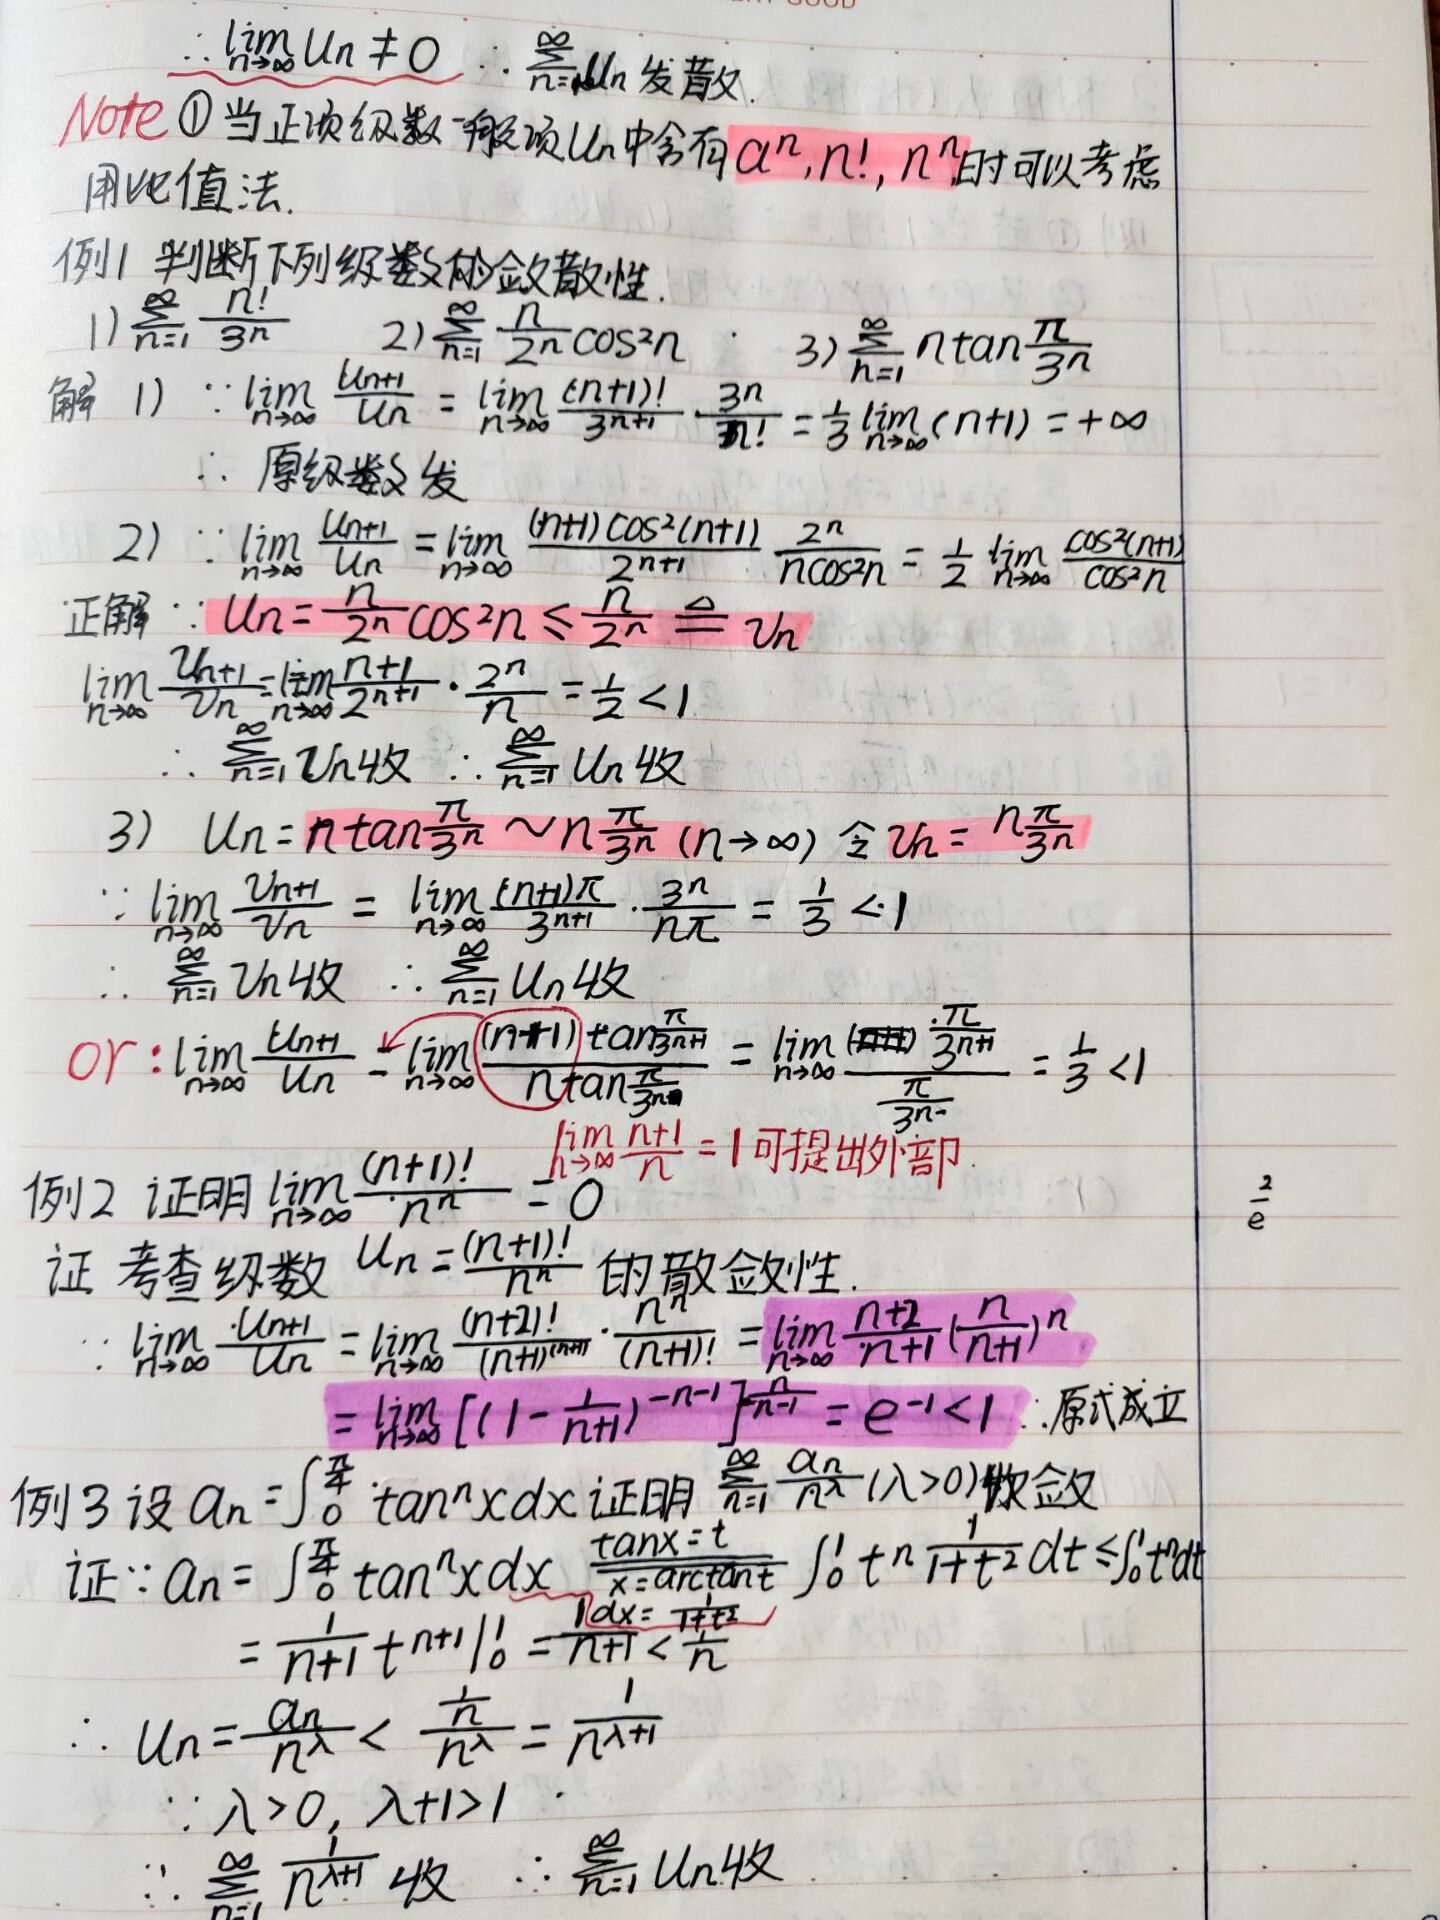 ∴ lim n→∞ Un ≠ 0 ∴ ∞∑n=1 Un 发散.
Note ① 当正项级数一般项Un中含有 aⁿ, n!, nⁿ 时可以考虑
用比值法.
例1 判断下列级数的敛散性.
1) ∞∑n=1 n!/3ⁿ 2) ∞∑n=1 n/2ⁿ cos²n 3) ∞∑n=1 n tan π/3ⁿ
解 1) ∵ lim n→∞ Un+1/Un = lim n→∞ (n+1)!/3ⁿ⁺¹ · 3ⁿ/n! = 1/3 lim n→∞ (n+1) = +∞
∴ 原级数发
2) ∵ lim n→∞ Un+1/Un = lim n→∞ (n+1)cos²(n+1)/2ⁿ⁺¹ 2ⁿ/ncos²n = 1/2 lim n→∞ cos²(n+1)/cos²n
正解 ∵ Un = n/2ⁿ cos²n ≤ n/2ⁿ ≜ Vn
lim n→∞ Vn+1/Vn = lim n→∞ n+1/2ⁿ⁺¹ · 2ⁿ/n = 1/2 < 1
∴ ∞∑n=1 Vn收 ∴ ∞∑n=1 Un收
3) Un = n tan π/3ⁿ ~ n π/3ⁿ (n→∞) 令 Vn = nπ/3ⁿ
∵ lim n→∞ Vn+1/Vn = lim n→∞ (n+1)π/3ⁿ⁺¹ · 3ⁿ/nπ = 1/3 < 1
∴ ∞∑n=1 Vn收 ∴ ∞∑n=1 Un收
or: lim n→∞ Un+1/Un = lim n→∞ (n+1) tan π/3ⁿ⁺¹ / n tan π/3ⁿ = lim n→∞ π/3ⁿ⁺¹ / π/3ⁿ = 1/3 < 1
lim n→∞ n+1/n = 1 可提出外部.
例2 证明 lim n→∞ (n+1)!/nⁿ = 0
2/e
证 考查级数 Un = (n+1)!/nⁿ 的散敛性.
∵ lim n→∞ Un+1/Un = lim n→∞ (n+2)!/(n+1)⁽ⁿ⁺¹⁾ · nⁿ/(n+1)! = lim n→∞ n+2/n+1 (n/n+1)ⁿ
= lim n→∞ [(1 - 1/n+1)⁻ⁿ⁻¹]^(n/-n-1) = e⁻¹ < 1 ∴ 原式成立
例3 设 an = ∫₀^(π/4) tanⁿxdx 证明 ∞∑n=1 an/n^λ (λ>0) 收敛
证 ∵ an = ∫₀^(π/4) tanⁿxdx tanx=t x=arctant ∫₀¹ tⁿ 1/1+t² dt ≤ ∫₀¹ tⁿdt
dx = 1/1+t²
= 1/n+1 tⁿ⁺¹|₀¹ = 1/n+1 < 1/n
∴ Un = an/n^λ < 1/n / n^λ = 1/n^(λ+1)
∵ λ>0, λ+1>1
∵ ∞∑n=1 1/n^(λ+1) 收 ∴ ∞∑n=1 Un收